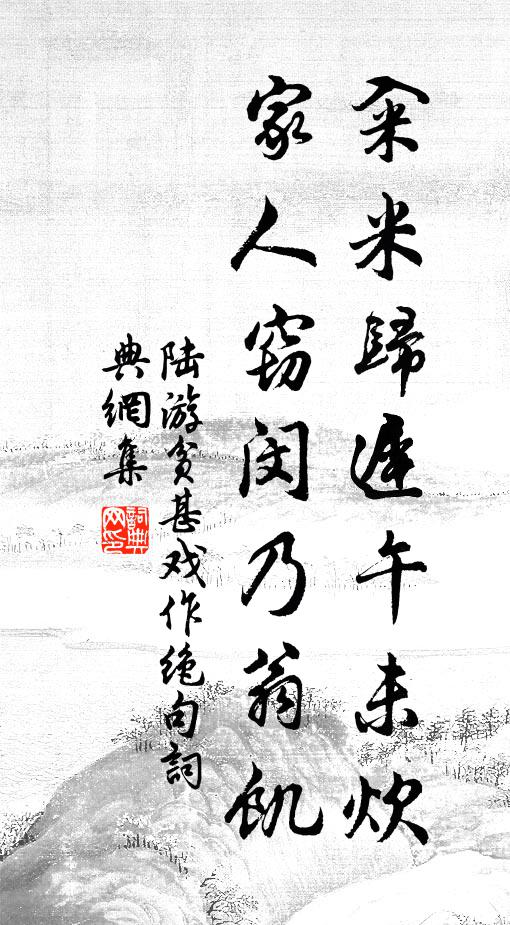 籴米歸遲午未炊
家人窃闵乃翁飢
陆游贫甚戏作绝句詞
典網集
詞典
网印